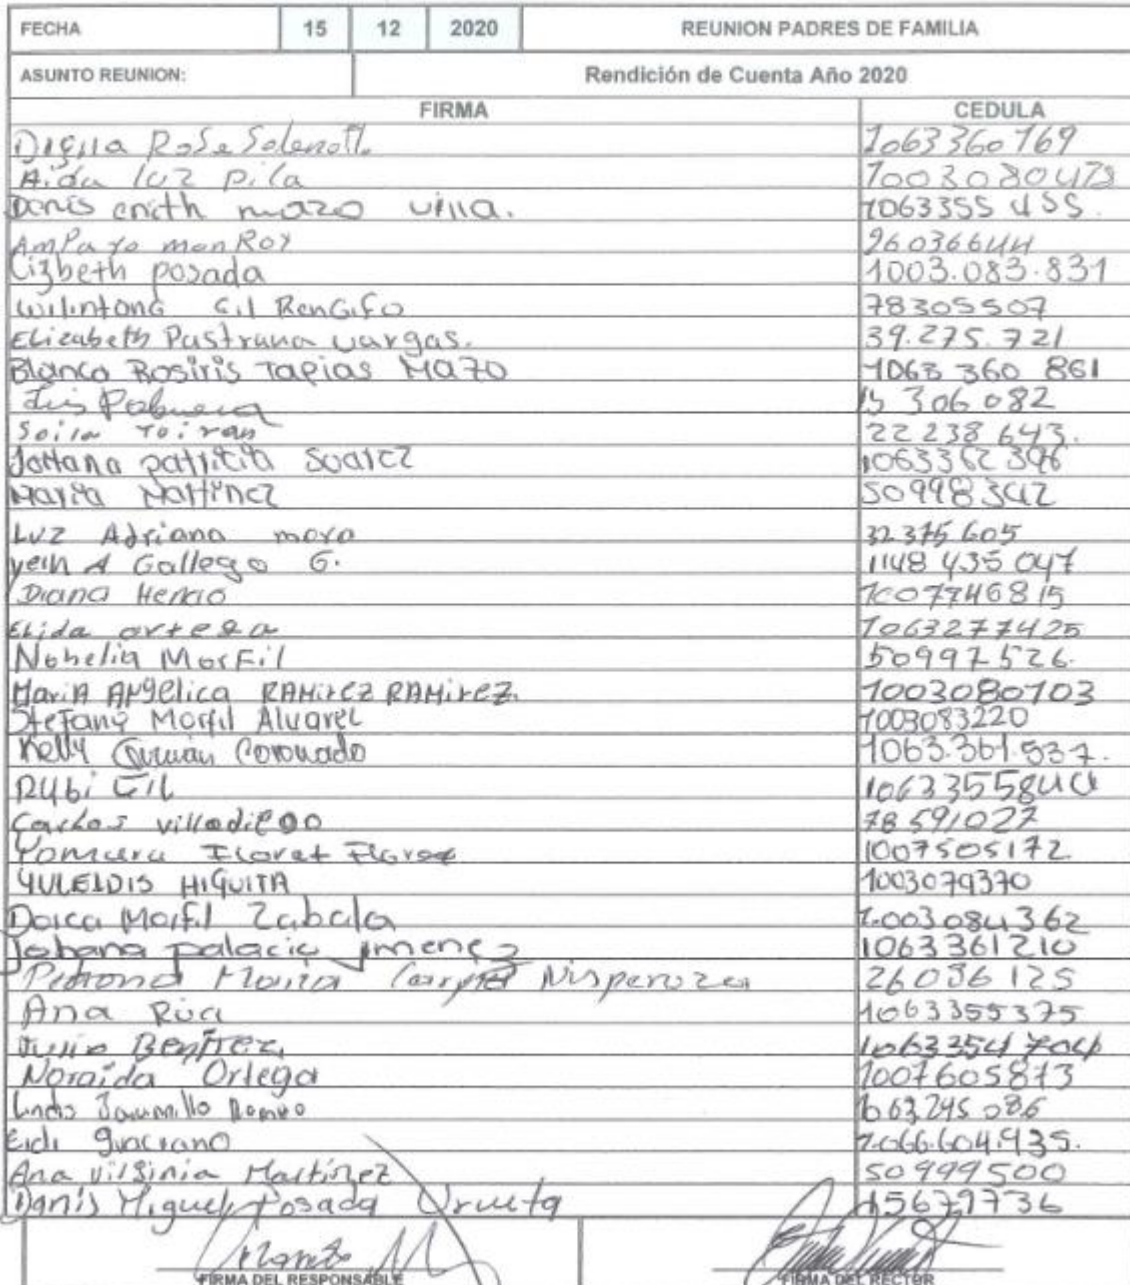 FECHA 15 12 2020 REUNION PADRES DE FAMILIA
ASUNTO REUNION: Rendición de Cuenta Año 2020
FIRMA CEDULA
Digna Rosa 1063360769
Aida luz pila 1003080473
Danis enith mazo villa. 1063355455.
AmPayo monRoy 26036644
Lizbeth posada 1003.083.831
wilintong Gil RenGifo 78305507
Elizabeth Pastrana vargas. 39.275.721
Blanca Rosiris Tapias Mazo 1063 360 861
Luis 15 306 082
Soila Toiran 22 238 643.
patricia Suarez 1063362396
Maria Martinez 50998342
Luz Adriana mora 32375605
yein A Gallego G. 1148 435 047
Diana Henao 1007746815
Elida artega 1063277425
Nohelia Morfil 50997526.
MariA ANgelica RAMirez RAMirez. 1003080103
Stefany Morfil Alvarez 1003083220
Kelly Guzmán Coronado 1063.361.537.
Rubi Gil
Carlos villadiego 78591027
Yomaira Florez Florez 1007505172
YULEIDIS HIGUITA 1003079370
Dorca Morfil Zabala 1.003084362
Johana palacio jimenez 1063361210
Petrona Maria Nisperuza 26036125
Ana Ruiz 1063355375
Junio Benitez 1063354704
Noraida Ortega 1007605873
Jaramillo
Eidi guaciano 1.066.604.935.
Ana virginia Martinez 50999500
Danis Miguel Posada Urueta 15679736
FIRMA DEL RESPONSABLE FIRMA DEL RECTOR